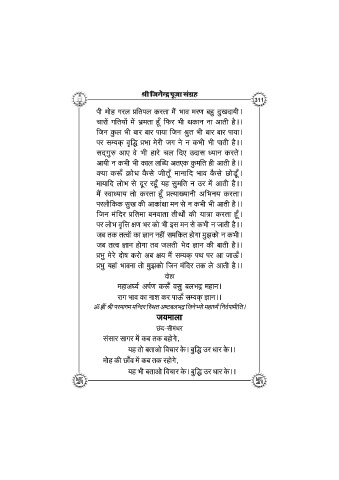 श्री जिनेन्द्र पूजा संग्रह
311
पी मोह गरल प्रतिपल करता मैं भाव मरण बहु दुखदायी।
चारों गतियों में भ्रमता हूँ फिर भी थकान ना आती है।।
जिन कुल भी बार बार पाया जिन श्रुत भी बार बार पाया।
पर सम्यक् बुद्धि प्रभा मेरी जग ने न कभी भी पाती है।।
सद्‌गुरु आए वे भी हारे चल दिए उदास ध्यान करते।
आयी न कभी भी काल लब्धि अतएव कुमति ही आती है।।
क्या करूँ क्रोध कैसे जीतूँ मानादि भाव कैसे छोडूँ।
मायादि लोभ से दूर रहूँ यह सुमति न उर में आती है।।
मैं स्वाध्याय तो करता हूँ प्रत्याख्यानी अभिनय करता।
परलौकिक सुख की आकांक्षा मन से न कभी भी आती है।।
जिन मंदिर प्रतिमा बनवाता तीर्थों की यात्रा करता हूँ।
पर लोभ वृत्ति क्षण भर को भी इस मन से कभी न जाती है।।
जब तक तत्वों का ज्ञान नहीं समकित होगा मुझको न कभी।
जब तत्व ज्ञान होगा तब जलती भेद ज्ञान की बाती है।।
प्रभु मेरे दोष करो अब क्षय मैं सम्यक् पथ पर आ जाऊँ।
प्रभु यहां भावना तो मुझको जिन मंदिर तक ले आती है।।
दोहा
महाअर्घ्य अर्पण करूँ वसु बलभद्र महान।
राग भाव का नाश कर पाऊँ सम्यक् ज्ञान।।
ॐ ह्रीं श्री परमागम मन्दिर स्थित अष्टबलभद्र जिनेभ्यो महार्घ्यं निर्वपामीति।
जयमाला
छंद-सीमंधर
संसार सागर में कब तक बहोगे,
यह तो बताओ विचार के। बुद्धि उर धार के।।
मोह की छाँव में कब तक रहोगे,
यह भी बताओ विचार के। बुद्धि उर धार के।।